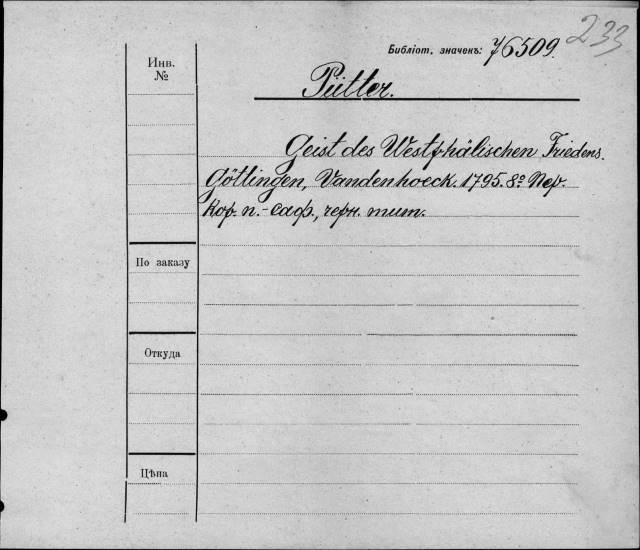 233
Библіот. значекъ: 76509.
Инв.
№
Pütter.
Geist des Westphälischen Friedens.
Göttingen, Vandenhoeck. 1795. 8º. Пер.
кор. п.-саф., черн. тит.
По заказу
Откуда
Цѣна